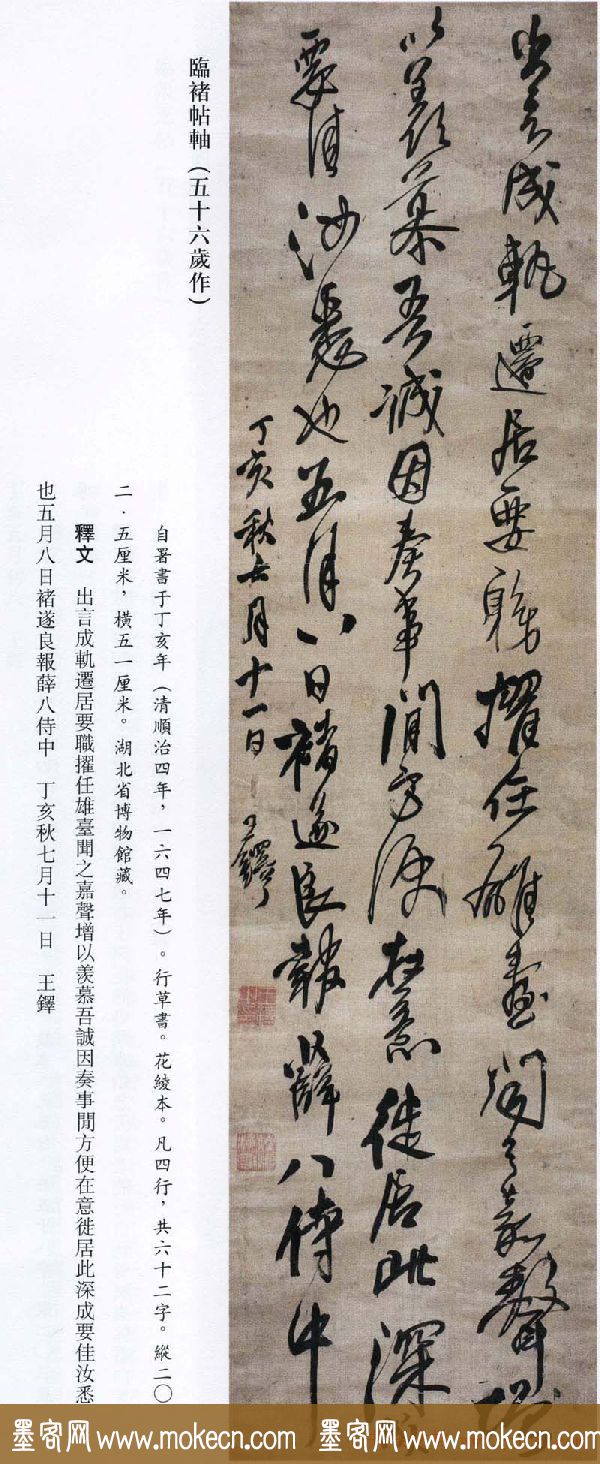 出言成軌遷居要職擢任雄臺聞之嘉聲增
以羨慕吾誠因奏事閒方便在意徙居此深成
要佳汝悉也五月八日褚遂良報薛八侍中
丁亥秋七月十一日 王鐸
臨褚帖軸（五十六歲作）
自署書于丁亥年（清順治四年，一六四七年）。行草書。花綾本。凡四行，共六十二字。縱二〇
二·五厘米，橫五一厘米。湖北省博物館藏。
釋文 出言成軌遷居要職擢任雄臺聞之嘉聲增以羨慕吾誠因奏事閒方便在意徙居此深成要佳汝悉
也五月八日褚遂良報薛八侍中 丁亥秋七月十一日 王鐸
墨客网 www.mokecn.com 墨客网 www.mokecn.com